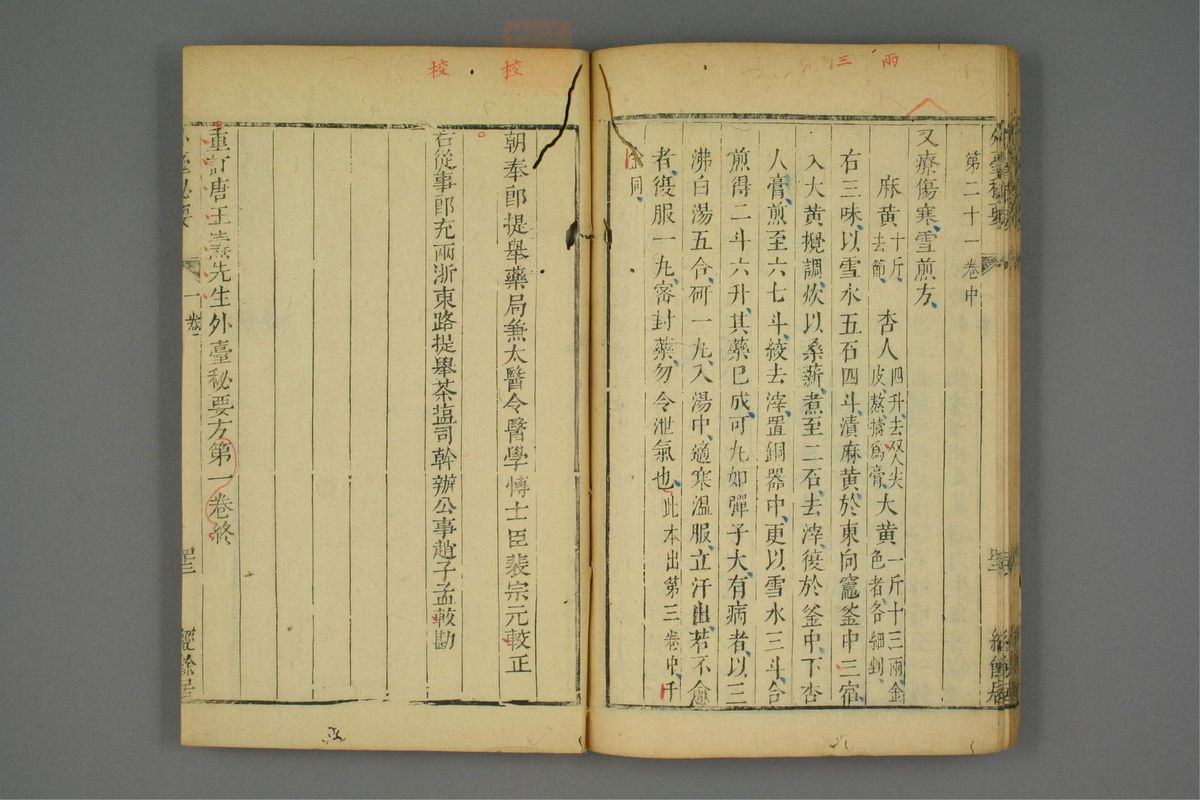 兩
三
外臺秘要
第二十一卷中
又療傷寒雪煎方
麻黃十斤去節 杏人四升去双人尖皮熬擣爲膏 大黃一斤十三兩金色者各細剉
右三味以雪水五石四斗漬麻黃於東向竈釜中三宿
入大黃攪調炊以桑薪煮至二石去滓復於釜中下杏
人膏煎至六七斗絞去滓置銅器中更以雪水三斗合
煎得二斗六升其藥已成可丸如彈子大有病者以三
沸白湯五合研一丸入湯中適寒溫服立汗出若不愈
者復服一丸密封藥勿令泄氣也此本出第三卷中千
金同
校
校
朝奉郎提舉藥局兼太醫令醫學博士臣裴宗元較正
右從事郎充兩浙東路提舉茶塩司幹辦公事趙子孟較勘
重訂唐王燾先生外臺秘要方第一卷終
外臺秘要
一卷
經餘居